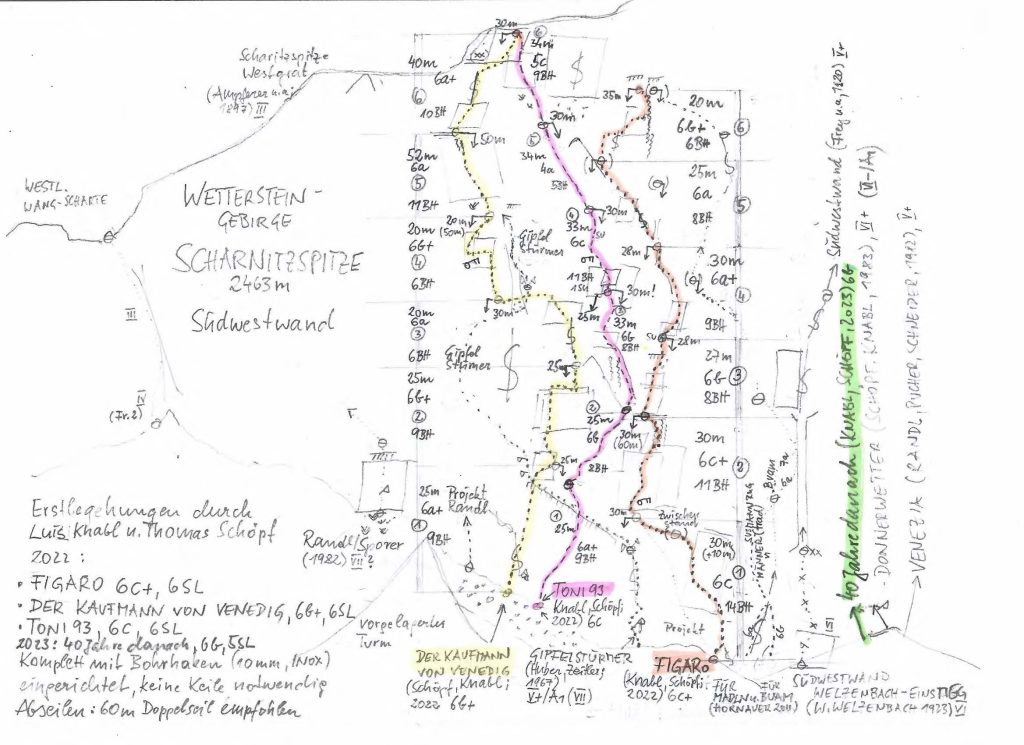 Scharitzspitze
Westgrat
(Ampferer u.a;
1897) III
WESTL.
WANG-SCHARTE
WETTERSTEIN-
GEBIRGE
SCHARNITZSPITZE
2463m
SÜDWESTWAND
III
IV
(Fr.2)
V
Randl/Sporer
(1982) VII?
vorgelagerter
Turm
Erstbegehungen durch
Luis Knabl u. Thomas Schöpf
2022:
• FIGARO 6C+, 6SL
• DER KAUFMANN VON VENEDIG, 6G+, 6SL
• TONI 93, 6C, 6SL
2023: 40 Jahre danach, 6G, 5SL
Komplett mit Bohrhaken (10mm, INOX)
eingerichtet, keine Keile notwendig
Abseilen: 60m Doppelseil empfohlen
40m
6a+
6
10BH
50m
52m
6a
5
11BH
20m
(50m)
20m
6G+
4
6BH
30m
20m
6a
3
6BH
25m
25m
6G+
2
9BH
25m
25m
6a+
1
9BH
Projekt
Randl
Gipfel
Stürmer
Gipfel
Stürmer
30m
(xx)
6
34m
5c
9BH
30m
5
34m
4a
5BH
30m
4
33m
6c
SU
11BH
1SU
30m!
25m
3
33m
6G
8BH
2
25m
6G
8BH
1
25m
6a+
9BH
35m
20m
6G+
6BH
6
25m
6a
8BH
5
28m
30m
6a+
4
9BH
SU
28m
27m
6G
8BH
3
30m
(60m)
30m
6C+
11BH
2
30m
Zwischen
stand
30m
(+10m)
6C
1
14BH
Projekt
DER KAUFMANN
VON VENEDIG
(Schöpf, Knabl;
2022 6G+
TONI 93
Knabl, Schöpf;
2022) 6C
GIPFELSTÜRMER
(Huber, Zeitler;
1967)
V+/A1 (VII)
FIGARO
(Knabl, Schöpf;
2022) 6C+
FÜR
MADLN u. BUAM
(HORNAUER 2011)
FÜR
BUAM
MÄNNER (trad)
Buam
7a
6G
xx
VI
SÜDWESTWAND
WELZENBACH-EINSTIEG
(W. WELZENBACH 1923) VI
Südwestwand (Frey u.a, 1920) V+
40 Jahre danach (KNABL, SCHÖPF, 2023) 6G
DONNERWETTER (SCHÖPF, KNABL, 1983), VI+ (VI-/A1)
VENEZIA (RANDL, PUCHER, SCHNEIDER, 1982), V+